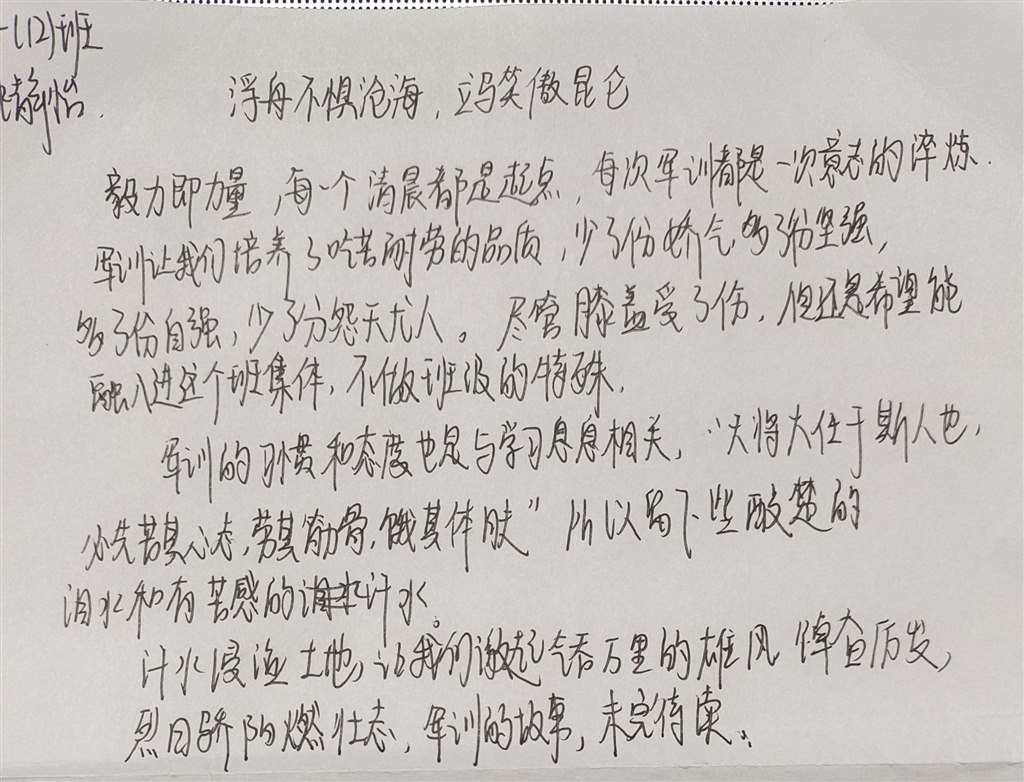 一(12)班
静怡.
浮舟不惧沧海,立马笑傲昆仑
毅力即力量,每一个清晨都是起点,每次军训都是一次意志的淬炼.
军训让我们培养了吃苦耐劳的品质,少了份娇气多了份坚强,
多了份自强,少了分怨天尤人。尽管膝盖受了伤,但还是希望能
融入进这个班集体,不做班级的特殊.
军训的习惯和态度也是与学习息息相关,“天将大任于斯人也,
必先苦其心志,劳其筋骨,饿其体肤”所以留下些酸楚的
泪水和有苦感的汗水。
汁水浸渔土地,让我们激起气吞万里的雄风 倬查厉发,
烈日骄阳燃壮态,军训的故事,未完待续..